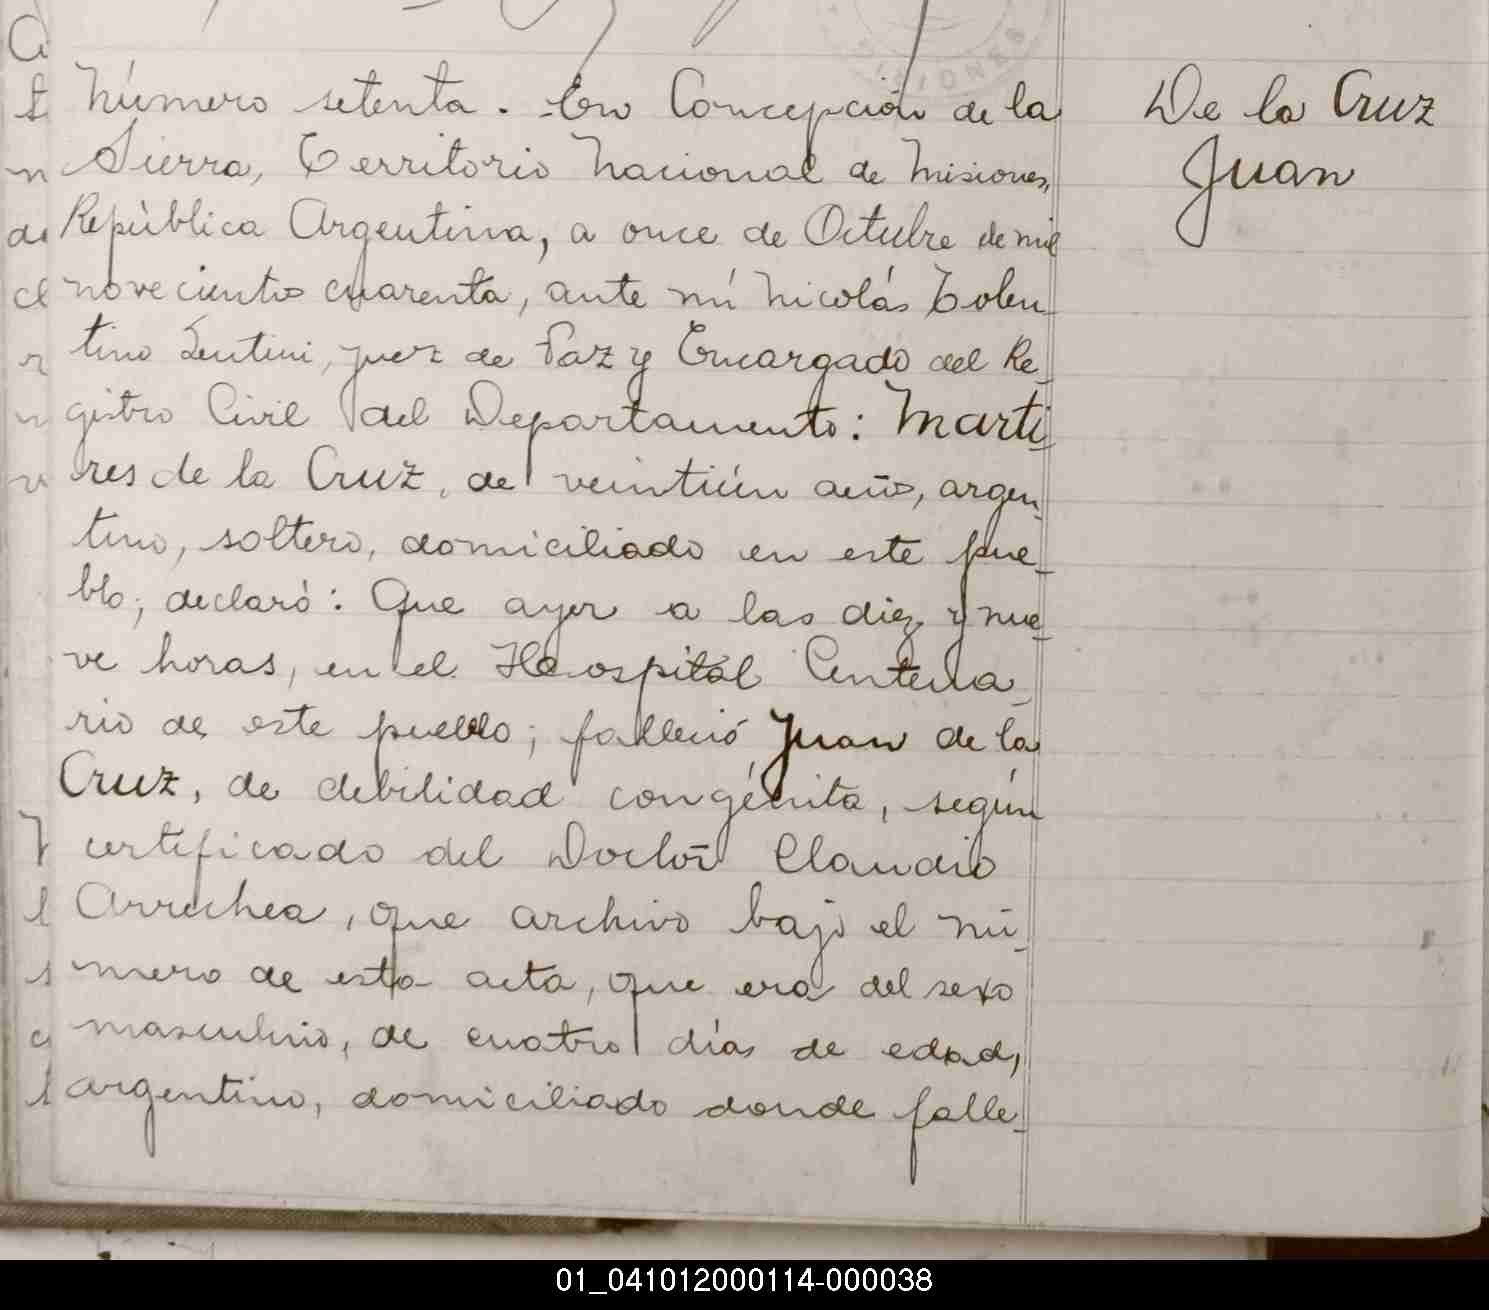 Número setenta. En Concepción de la
Sierra, Territorio Nacional de Misiones,
República Argentina, a once de Octubre de mil
novecientos cuarenta, ante mí Nicolás Tolen-
tino Lentini, juez de Paz y Encargado del Re-
gistro Civil del Departamento: Marti-
res de la Cruz, de veintiún años, argen-
tino, soltero, domiciliado en este pue-
blo; declaró: Que ayer a las diez y nue-
ve horas, en el Hospital Centena-
rio de este pueblo; falleció Juan de la
Cruz, de debilidad congénita, según
certificado del Doctor Claudio
Arrechea, que archivo bajo el nú-
mero de esta acta, que era del sexo
masculino, de cuatro días de edad,
argentino, domiciliado donde falle-
De la Cruz
Juan
MISIONES
01_041012000114-000038